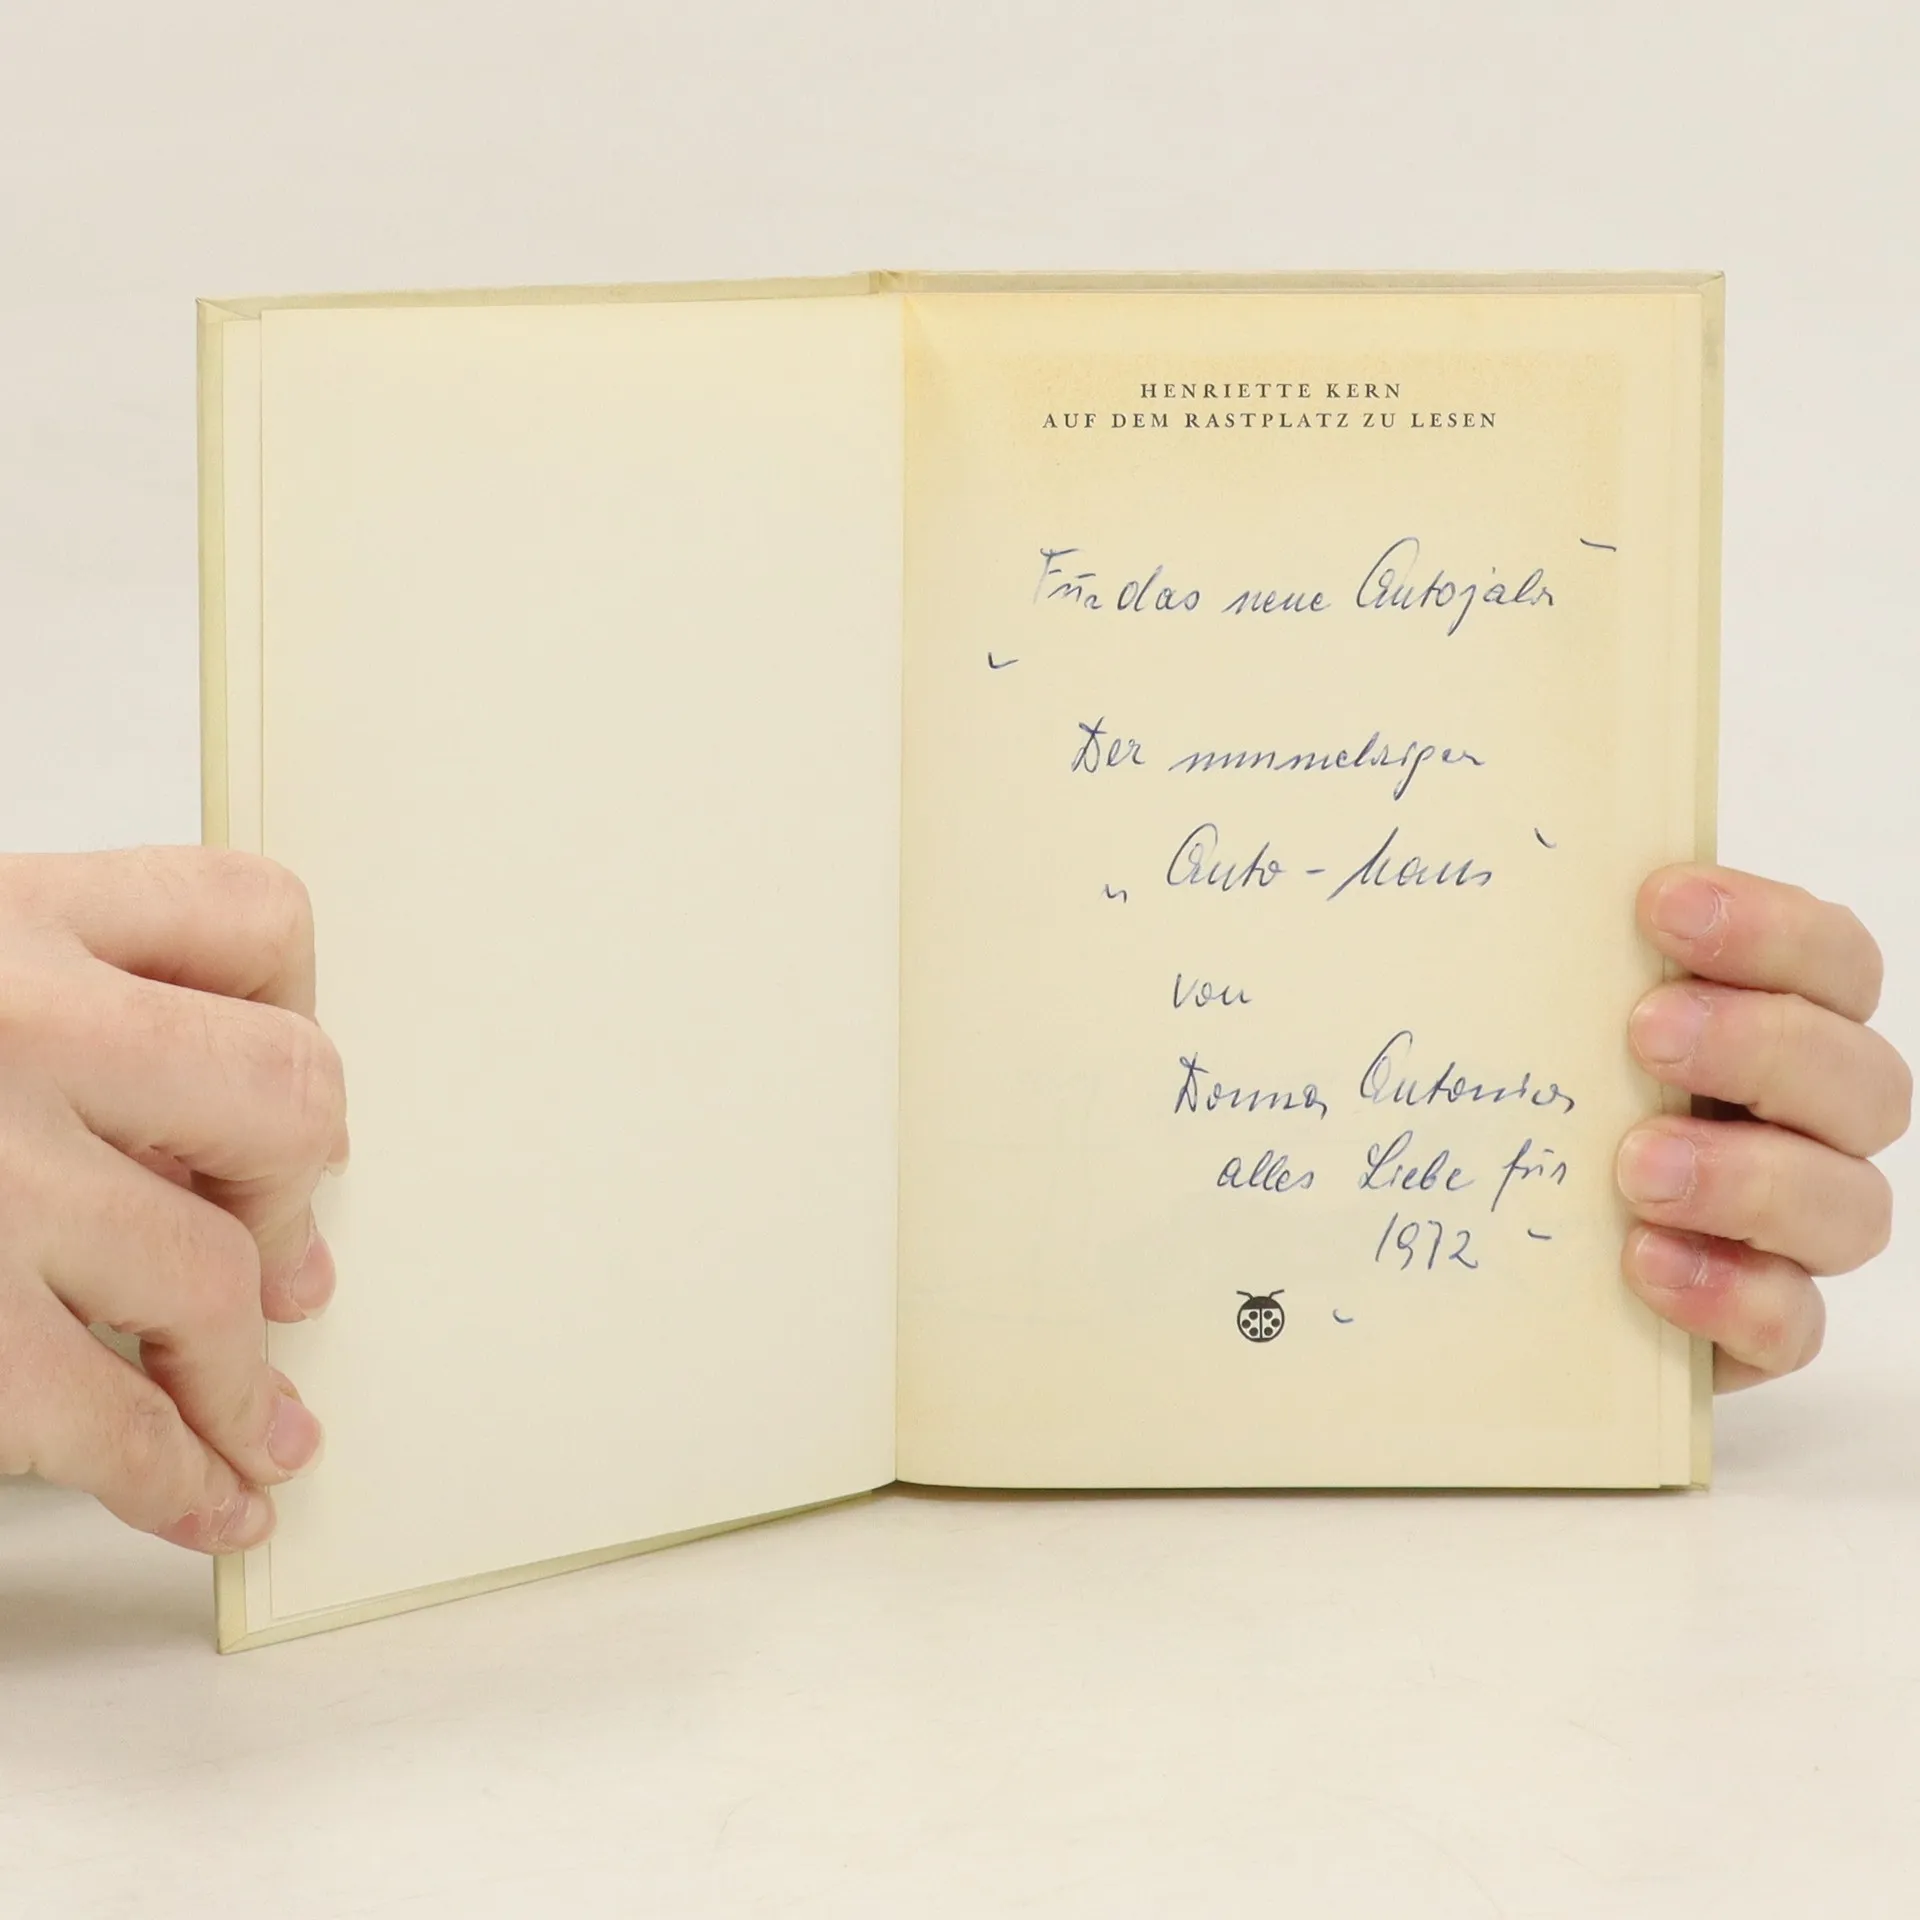 HENRIETTE KERN
AUF DEM RASTPLATZ ZU LESEN
Für das neue Autojahr
Der nunmehrigen
„Auto - Maus“
von
Donna Antonia
alles Liebe für
1972